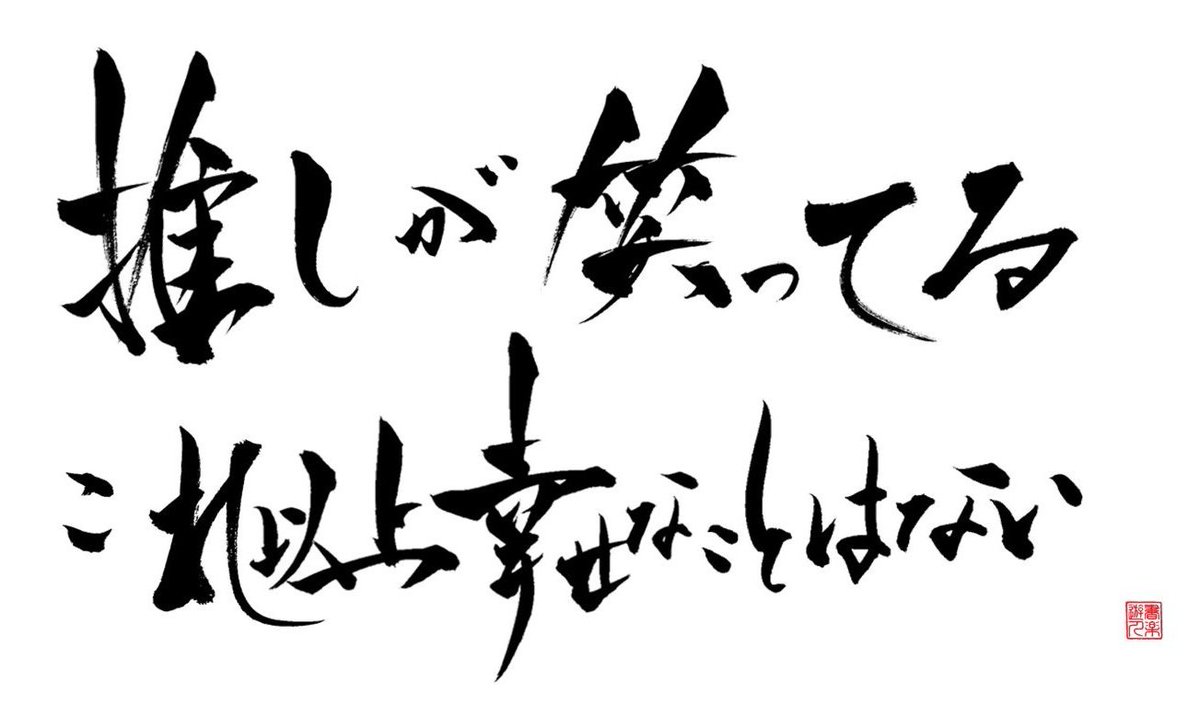 推しが笑ってる
これ以上幸せなことはない
書楽
遊人